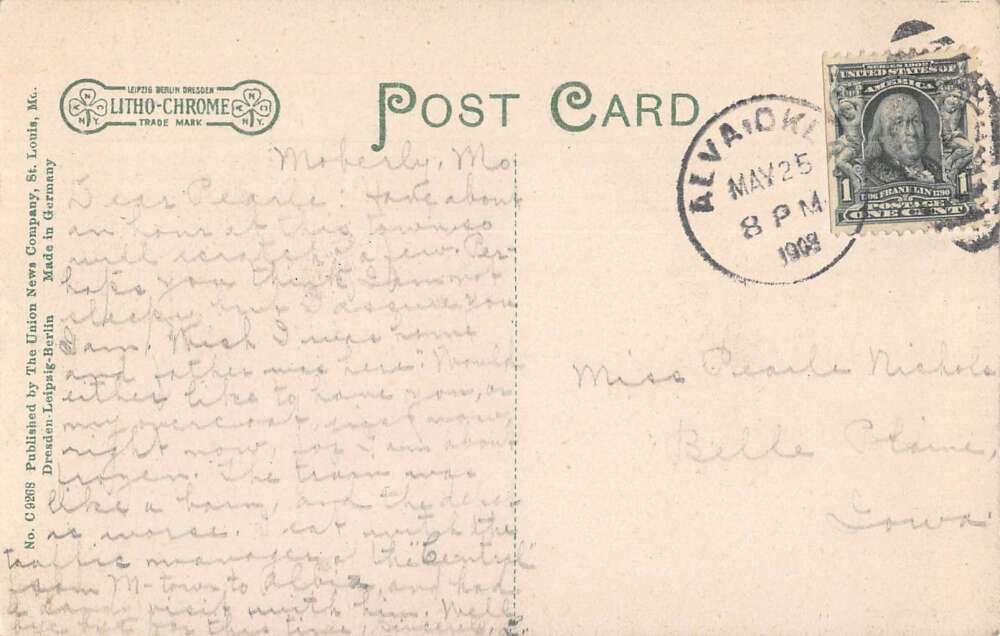 LEIPZIG BERLIN DRESDEN
LITHO-CHROME
TRADE MARK
N A N C N Y
N A N C N Y
POST CARD
ALVA, OKL
MAY 25
8 PM
1908
SERIES 1902
UNITED STATES OF
AMERICA
1 1
1706 FRANKLIN 1790
POSTAGE
ONE CENT
No. C 9268 Published by The Union News Company, St. Louis, Mo.
Dresden-Leipsig-Berlin Made in Germany
Moberly, Mo
Dear Pearle: Have about
an hour at this town so
will scratch a few. Per-
haps you think I am not
sleepy, but I assure you
I am. Wish I was home
and father was here. Would
either like to have you, or
my overcoat just now
right now, for I am about
frozen. The train was
like a barn, and the depot
is worse. I sat with the
traffic manager of the "Central"
from M-town to Albia, and had
a dandy visit with him. Well
bye bye for this time, Sincerely,
Miss Pearle Nichols
Belle Plaine,
Iowa